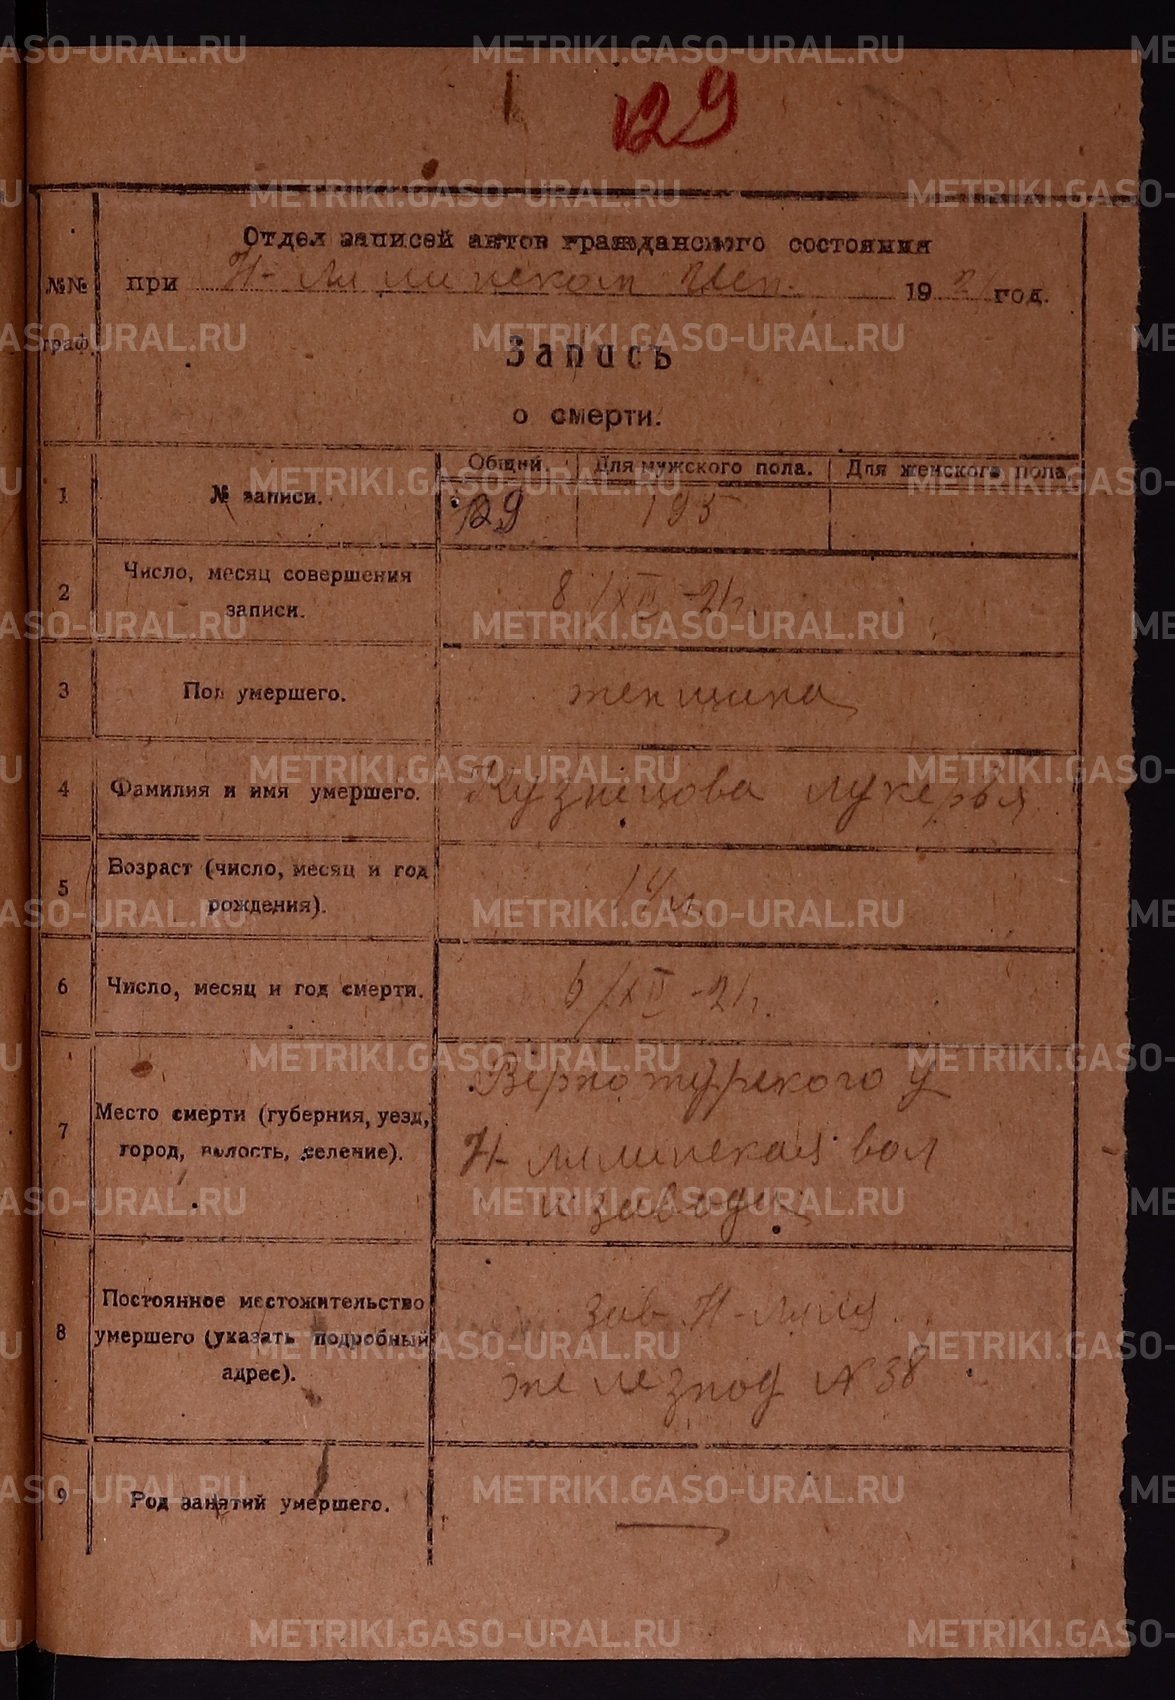 129
Отдел записей актов гражданского состояния
№№ граф.
при Н-Лялинском Исп. 1921 год.
Запись
о смерти.
1 № записи. Общий Для мужского пола. Для женского пола
129 195
2 Число, месяц совершения записи. 8/XII-21г.
3 Пол умершего. женщина
4 Фамилия и имя умершего. Кузнецова Лукерья
5 Возраст (число, месяц и год рождения).
6 Число, месяц и год смерти. 6/XII-21г.
7 Место смерти (губерния, уезд, город, волость, селение). Верхотурского у
Н-Лялинская вол
и завода
8 Постоянное местожительство умершего (указать подробный адрес). зав Н-Ляля
железнод N 38
9 Род занятий умершего. —
METRIKI.GASO-URAL.RU